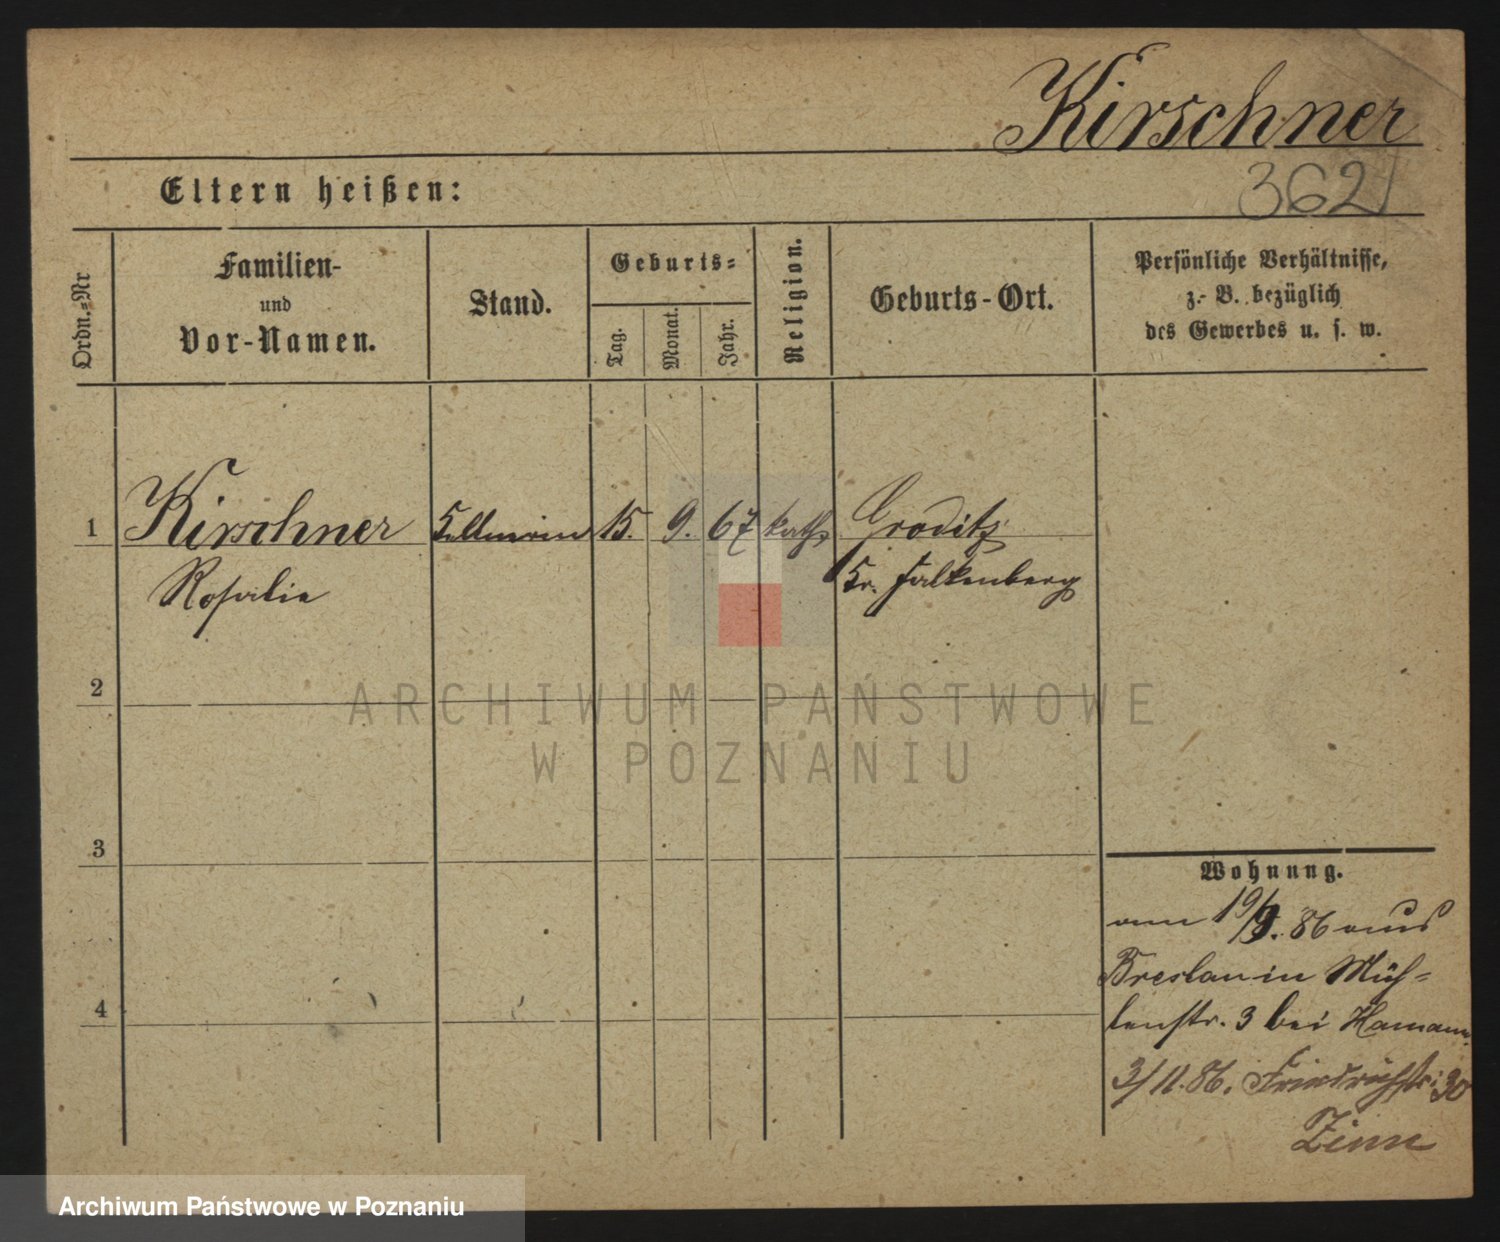 Kirschner
3621
Eltern heißen:
Ordn.-Nr
Familien-
und
Vor-Namen.
Stand.
Geburts-
Tag.
Monat.
Jahr.
Religion.
Geburts-Ort.
Persönliche Verhältnisse,
z. B. bezüglich
des Gewerbes u. s. w.
1 Kirschner Kellnerin 15. 9. 67 kath. Groditz
Rosalie Kr. Falkenberg
2
3
4
Wohnung.
am 19/9. 86 aus
Breslau in Müh-
lenstr. 3 bei Hamann.
3/11. 86. Friedrichstr. 30
Zinn
ARCHIWUM PAŃSTWOWE
W POZNANIU
Archiwum Państwowe w Poznaniu